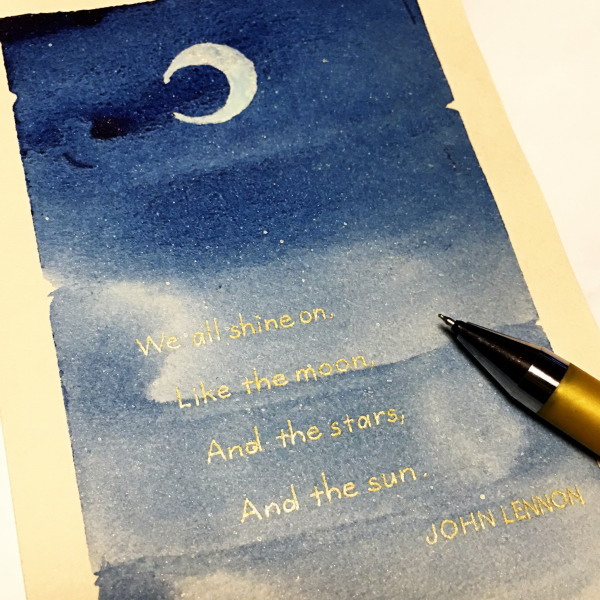 We all shine on,
Like the moon,
And the stars,
And the sun.
JOHN LENNON